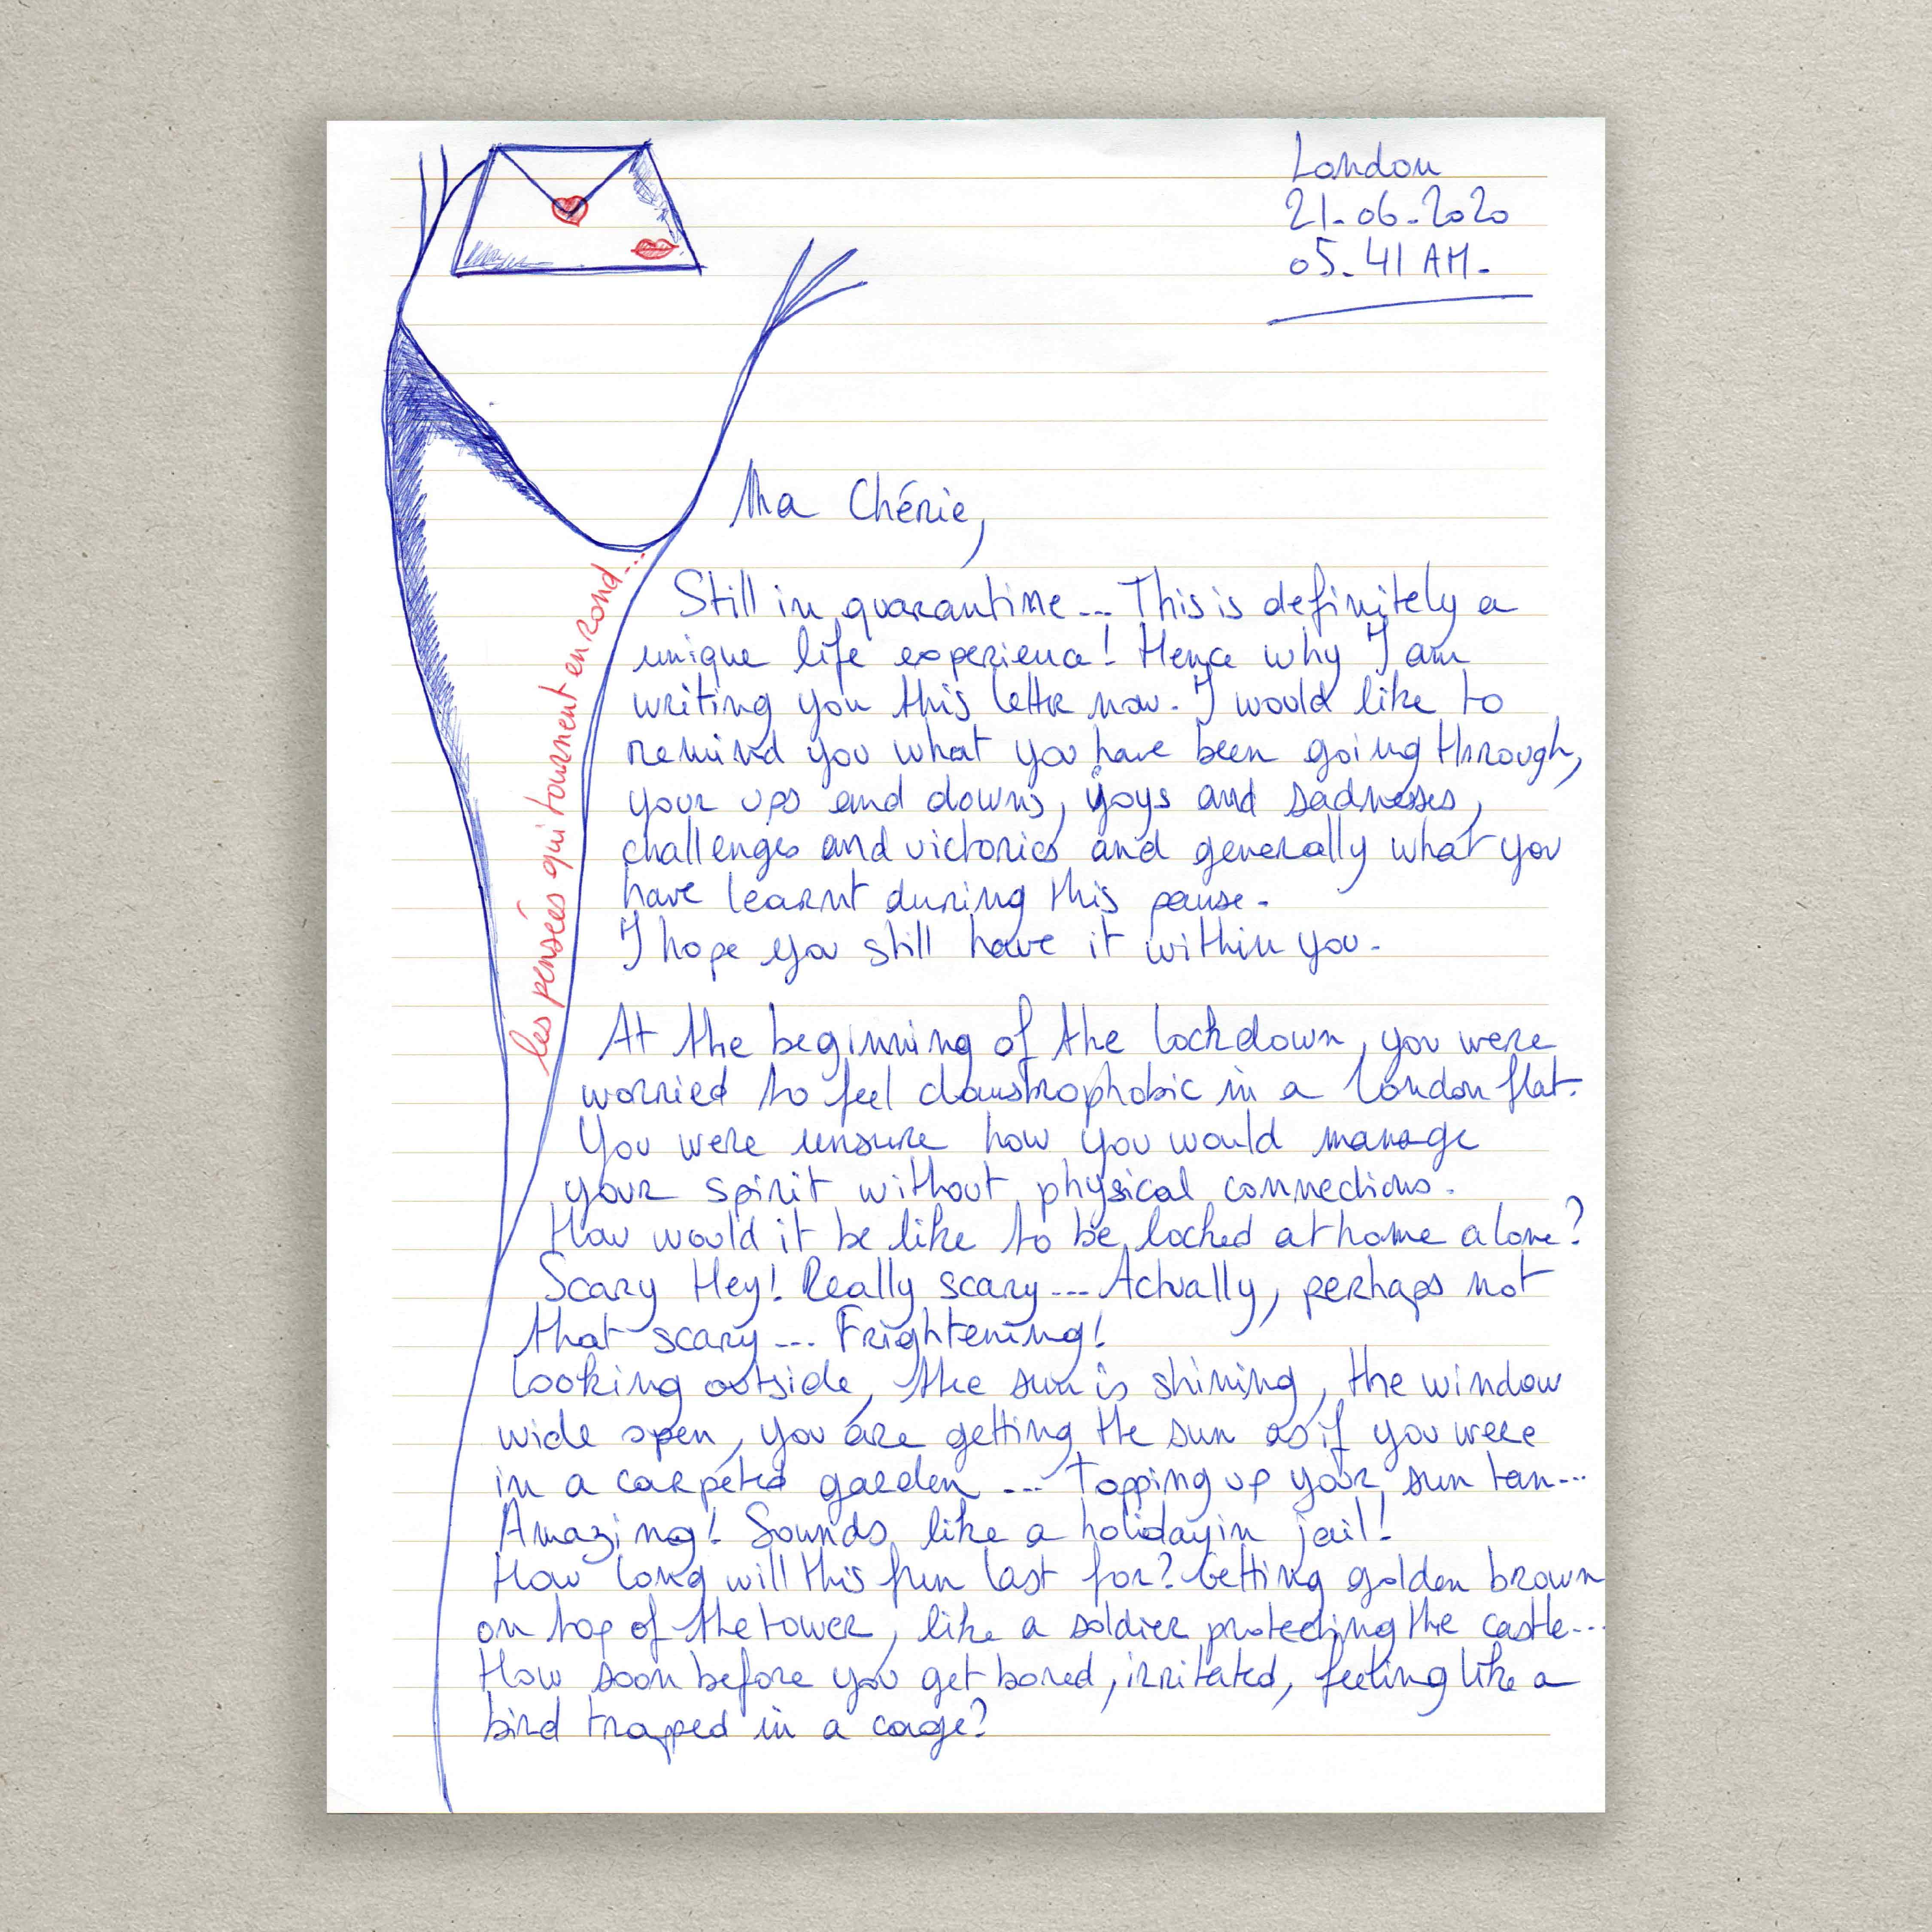 London
21-06-2020
05.41 AM-
Ma Chérie,
les pensées qui tournent en rond...
Still in quarantine... This is definitely a
unique life experience! Hence why I am
writing you this letter now. I would like to
remind you what you have been going through,
your ups and downs, joys and sadnesses,
challenges and victories and generally what you
have learnt during this pause.
I hope you still have it within you.
At the beginning of the lockdown, you were
worried to feel claustrophobic in a London flat.
You were unsure how you would manage
your spirit without physical connections.
How would it be like to be locked at home alone?
Scary Hey! Really scary... Actually, perhaps not
that scary... Frightening!
Looking outside, the sun is shining, the window
wide open, you are getting the sun as if you were
in a carpeted garden... Topping up your sun tan...
Amazing! Sounds like a holiday in jail!
How long will this fun last for? Getting golden brown
on top of the tower, like a soldier protecting the castle...
How soon before you get bored, irritated, feeling like a
bird trapped in a cage?